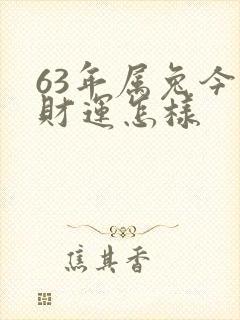 63年属兔今
财运怎样
焦其香